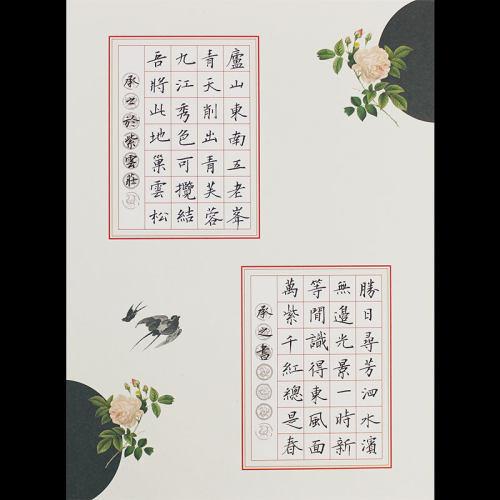 廬山東南五老峯
青天削出青芙蓉
九江秀色可攬結
吾將此地巢雲松
承之於紫雲莊
勝日尋芳泗水濱
無邊光景一時新
等閒識得東風面
萬紫千紅總是春
承之書